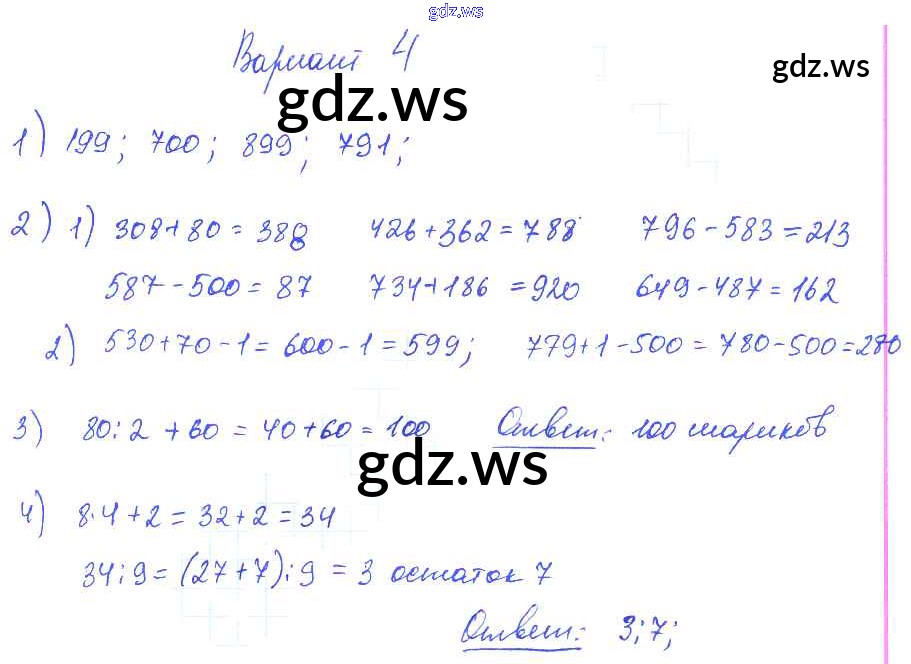 gdz.ws
Вариант 4
gdz.ws
gdz.ws
1) 199; 700; 899; 791;
2) 1) 308+80=388 426+362=788 796-583=213
587-500=87 734+186=920 649-487=162
2) 530+70-1=600-1=599; 779+1-500=780-500=280
3) 80:2+60=40+60=100 Ответ: 100 шариков
gdz.ws
4) 8·4+2=32+2=34
34:9=(27+7):9=3 остаток 7
Ответ: 3;7;